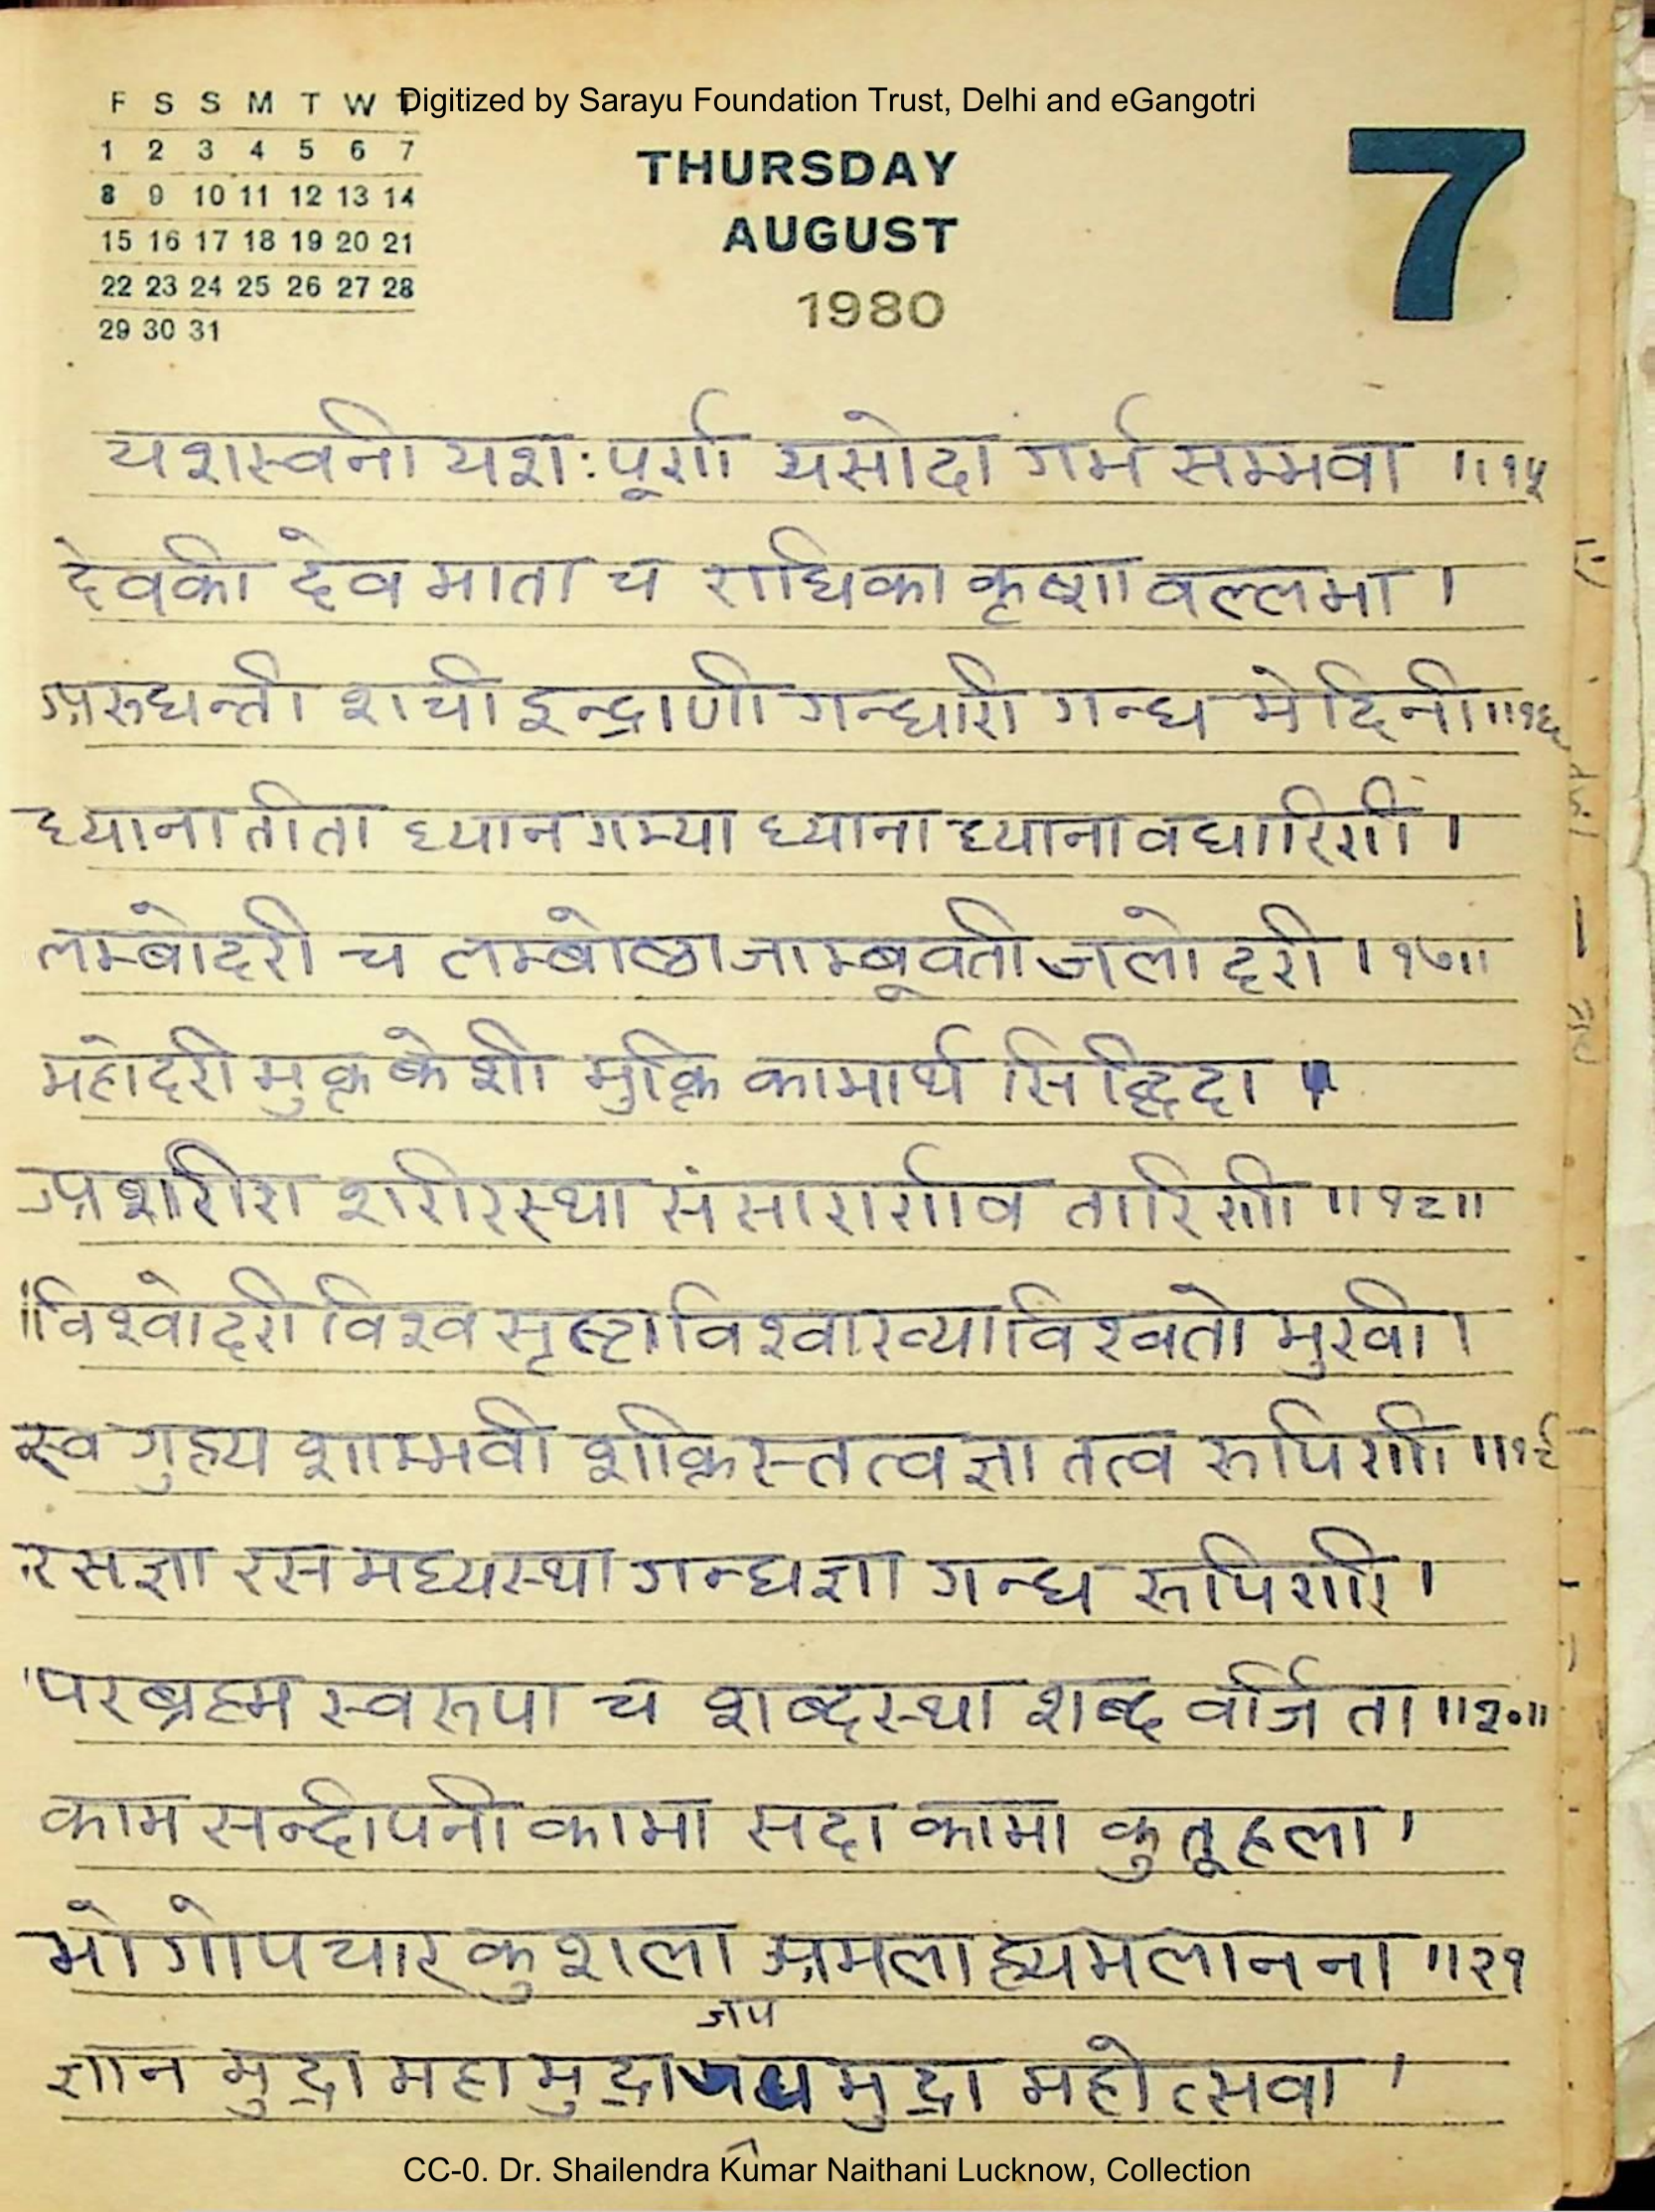 Digitized by Sarayu Foundation Trust, Delhi and eGangotri
F S S M T W T
1 2 3 4 5 6 7
8 9 10 11 12 13 14
15 16 17 18 19 20 21
22 23 24 25 26 27 28
29 30 31
THURSDAY
AUGUST
1980
7
यशस्वनी यशःपूर्णा यसोदा गर्भ सम्भवा ॥१५
देवकी देव माता च राधिका कृष्णा वल्लभा ।
अरुधन्ती शची इन्द्राणी गन्धारी गन्ध मोदिनी॥१६
ध्यानातीता ध्यान गम्या ध्याना ध्यानावधारिणी ।
लम्बोदरी च लम्बोष्ठा जाम्बूवती जलोदरी ।१७॥
महोदरी मुक्त केशी मुक्ति कामार्थ सिद्धिदा ।
अशरीरा शरीरस्था संसारार्णाव तारिणी ॥१८॥
विश्वोदरी विश्व सृष्टा विश्वाख्या विश्वतो मुखी ।
स्व गुह्य शाम्भवी शक्तिस्तत्वज्ञा तत्व रुपिणी ॥१९
रसज्ञा रस मध्यस्था गन्धज्ञा गन्ध रुपिणी ।
परब्रह्म स्वरुपा च शब्दस्था शब्द वर्जिता ॥२०॥
काम सन्दीपनी कामा सदा कामा कुतूहला ।
भोगोपचार कुशला अमला ह्यमलानना ॥२१
जप
ज्ञान मुद्रा महा मुद्रा मुद्रा महोत्सवा ।
CC-0. Dr. Shailendra Kumar Naithani Lucknow, Collection